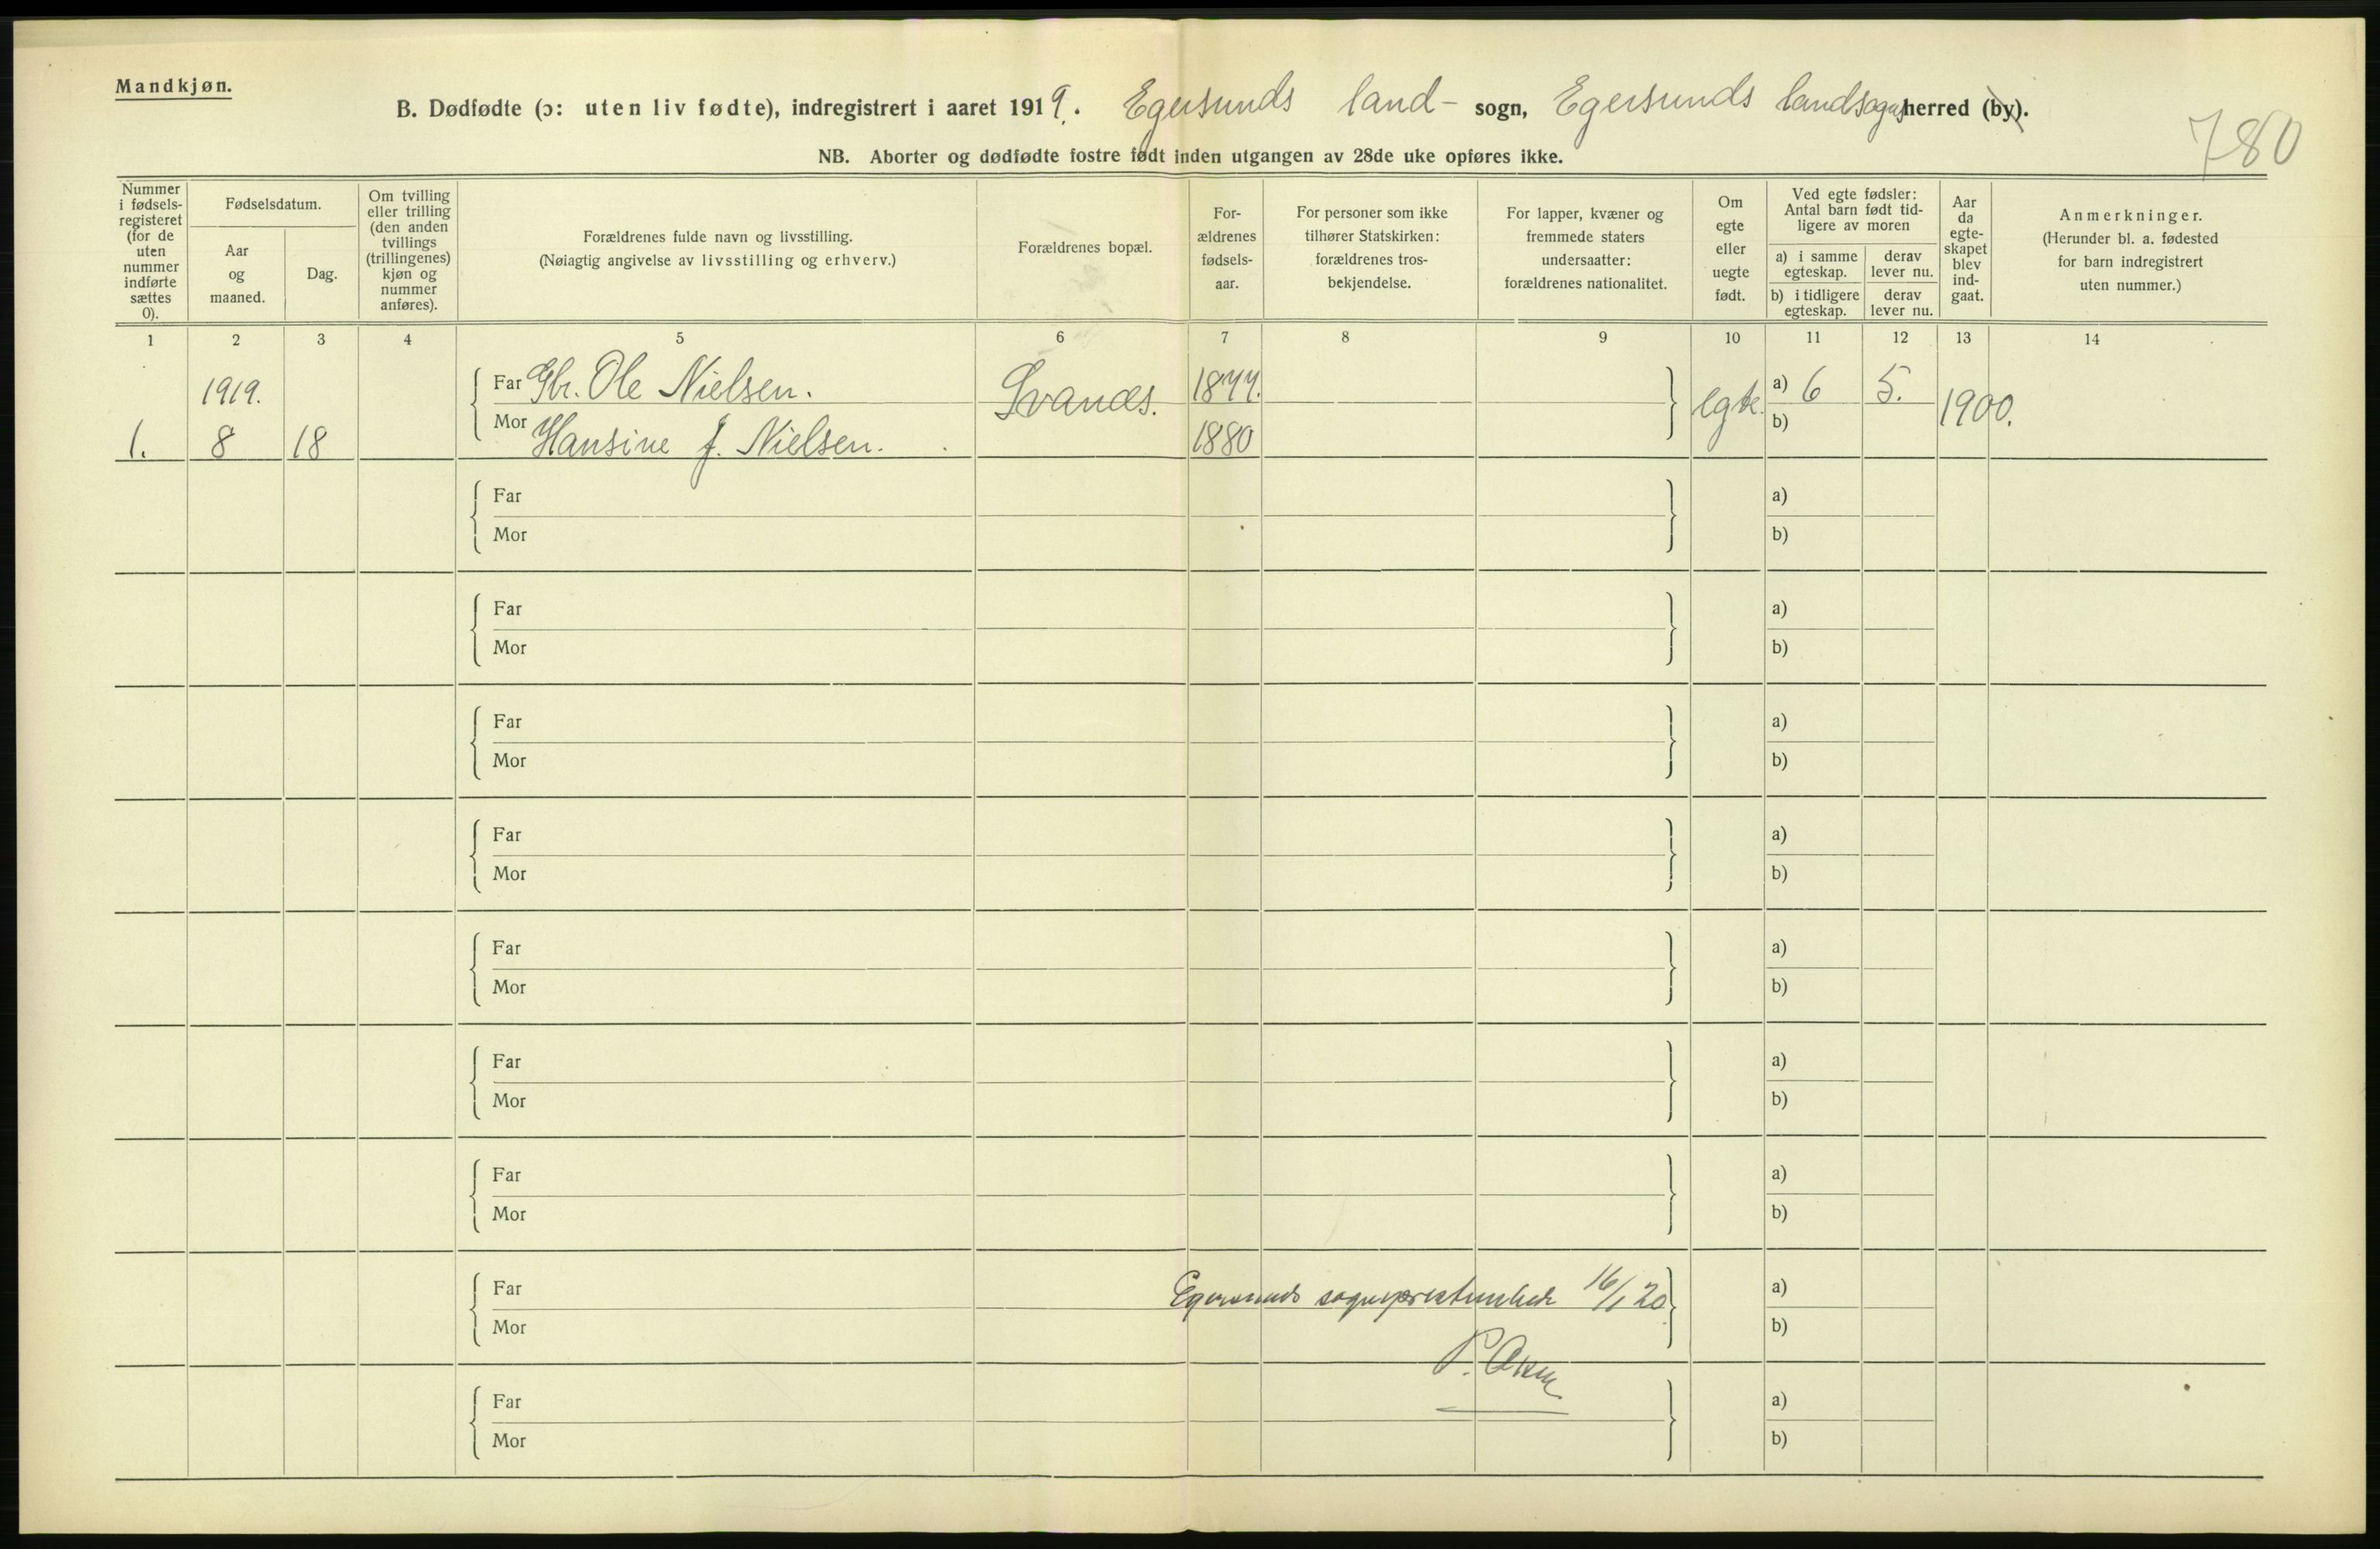 Mandkjøn.
B. Dødfødte (ɔ: uten liv fødte), indregistrert i aaret 1919. Egersunds land- sogn, Egersunds landsogns herred (by).
780
NB. Aborter og dødfødte fostre født inden utgangen av 28de uke opføres ikke.
Nummer i fødsels-registeret (for de uten nummer indførte sættes 0).
Fødselsdatum.
Aar og maaned.
Dag.
Om tvilling eller trilling (den anden tvillings (trillingenes) kjøn og nummer anføres).
Forældrenes fulde navn og livsstilling.
(Nøiagtig angivelse av livsstilling og erhverv.)
Forældrenes bopæl.
For-ældrenes fødsels-aar.
For personer som ikke tilhører Statskirken: forældrenes tros-bekjendelse.
For lapper, kvæner og fremmede staters undersaatter: forældrenes nationalitet.
Om egte eller uegte født.
Ved egte fødsler: Antal barn født tid-ligere av moren
a) i samme egteskap.
derav lever nu.
b) i tidligere egteskap.
derav lever nu.
Aar da egte-skapet blev ind-gaat.
Anmerkninger.
(Herunder bl. a. fødested for barn indregistrert uten nummer.)
1 2 3 4 5 6 7 8 9 10 11 12 13 14
1919.
Far Gbr. Ole Nielsen. 1877. a) 6 5.
Svanes. egte. 1900.
1. 8 18 Mor Hansine J. Nielsen. 1880 b)
Far a)
Mor b)
Far a)
Mor b)
Far a)
Mor b)
Far a)
Mor b)
Far a)
Mor b)
Far a)
Mor b)
Far a)
Mor b)
Far Egersunds sogneprestembede 16/1 20 a)
Mor b)
P.
Far a)
Mor b)